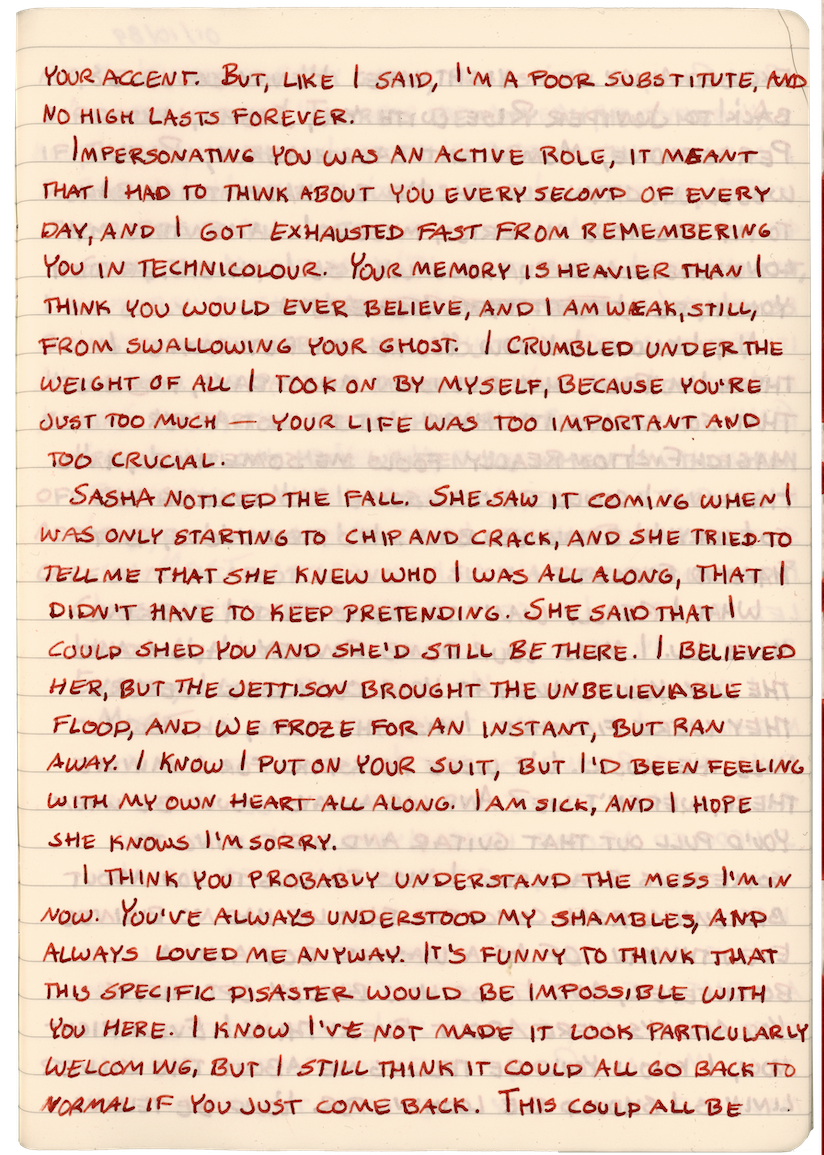 YOUR ACCENT. BUT, LIKE I SAID, I'M A POOR SUBSTITUTE, AND
NO HIGH LASTS FOREVER.
IMPERSONATING YOU WAS AN ACTIVE ROLE, IT MEANT
THAT I HAD TO THINK ABOUT YOU EVERY SECOND OF EVERY
DAY, AND I GOT EXHAUSTED FAST FROM REMEMBERING
YOU IN TECHNICOLOUR. YOUR MEMORY IS HEAVIER THAN I
THINK YOU WOULD EVER BELIEVE, AND I AM WEAK, STILL,
FROM SWALLOWING YOUR GHOST. I CRUMBLED UNDER THE
WEIGHT OF ALL I TOOK ON BY MYSELF, BECAUSE YOU'RE
JUST TOO MUCH — YOUR LIFE WAS TOO IMPORTANT AND
TOO CRUCIAL.
SASHA NOTICED THE FALL. SHE SAW IT COMING WHEN I
WAS ONLY STARTING TO CHIP AND CRACK, AND SHE TRIED TO
TELL ME THAT SHE KNEW WHO I WAS ALL ALONG, THAT I
DIDN'T HAVE TO KEEP PRETENDING. SHE SAID THAT I
COULD SHED YOU AND SHE'D STILL BE THERE. I BELIEVED
HER, BUT THE JETTISON BROUGHT THE UNBELIEVABLE
FLOOD, AND WE FROZE FOR AN INSTANT, BUT RAN
AWAY. I KNOW I PUT ON YOUR SUIT, BUT I'D BEEN FEELING
WITH MY OWN HEART ALL ALONG. I AM SICK, AND I HOPE
SHE KNOWS I'M SORRY.
I THINK YOU PROBABLY UNDERSTAND THE MESS I'M IN
NOW. YOU'VE ALWAYS UNDERSTOOD MY SHAMBLES, AND
ALWAYS LOVED ME ANYWAY. IT'S FUNNY TO THINK THAT
THIS SPECIFIC DISASTER WOULD BE IMPOSSIBLE WITH
YOU HERE. I KNOW I'VE NOT MADE IT LOOK PARTICULARLY
WELCOMING, BUT I STILL THINK IT COULD ALL GO BACK TO
NORMAL IF YOU JUST COME BACK. THIS COULD ALL BE